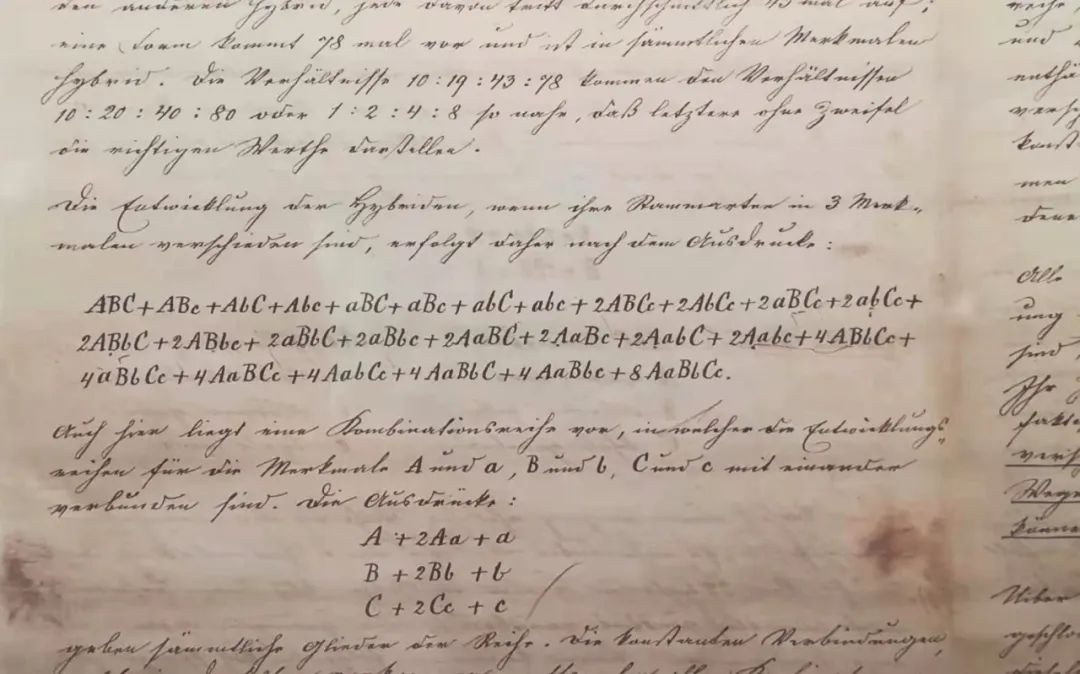 den anderen Hybrid, jede davon tritt durchschnittlich 43 mal auf;
eine Form kommt 78 mal vor und ist in sämmtlichen Merkmalen
Hybrid. Die Verhältnisse 10:19:43:78 kommen den Verhältnissen
10:20:40:80 oder 1:2:4:8 so nahe, daß letztere ohne Zweifel
die richtigen Werthe darstellen.
Die Entwicklung der Hybriden, wenn ihre Stammarten in 3 Merk-
malen verschieden sind, erfolgt daher nach dem Ausdrucke:
ABC+ABc+AbC+Abc+aBC+aBc+abC+abc+2ABCc+2AbCc+2aBCc+2abCc+
2ABbC+2ABbc+2aBbC+2aBbc+2AaBC+2AaBc+2AabC+2Aabc+4ABbCc+
4aBbCc+4AaBCc+4AabCc+4AaBbC+4AaBbc+8AaBbCc.
Auch hier liegt eine Kombinationsreihe vor, in welcher die Entwicklungs-
reihen für die Merkmale A und a, B und b, C und c mit einander
verbunden sind. Die Ausdrücke:
A+2Aa+a
B+2Bb+b
C+2Cc+c
geben sämmtliche Glieder der Reihe. Die konstanten Verbindungen,
und
konst
men
dene
Alle
ung
sind
Ihr
Wege
können
Uiber
geschlo